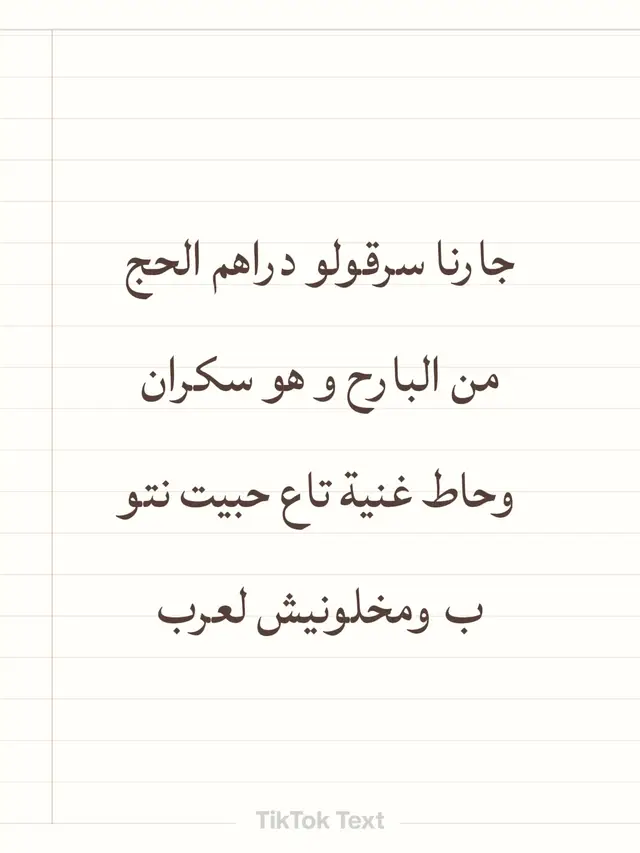 جارنا سرقولو دراهم الحج
من البارح و هو سكران
وحاط غنية تاع حبيت نتو
ب ومخلونيش لعرب
TikTok Text